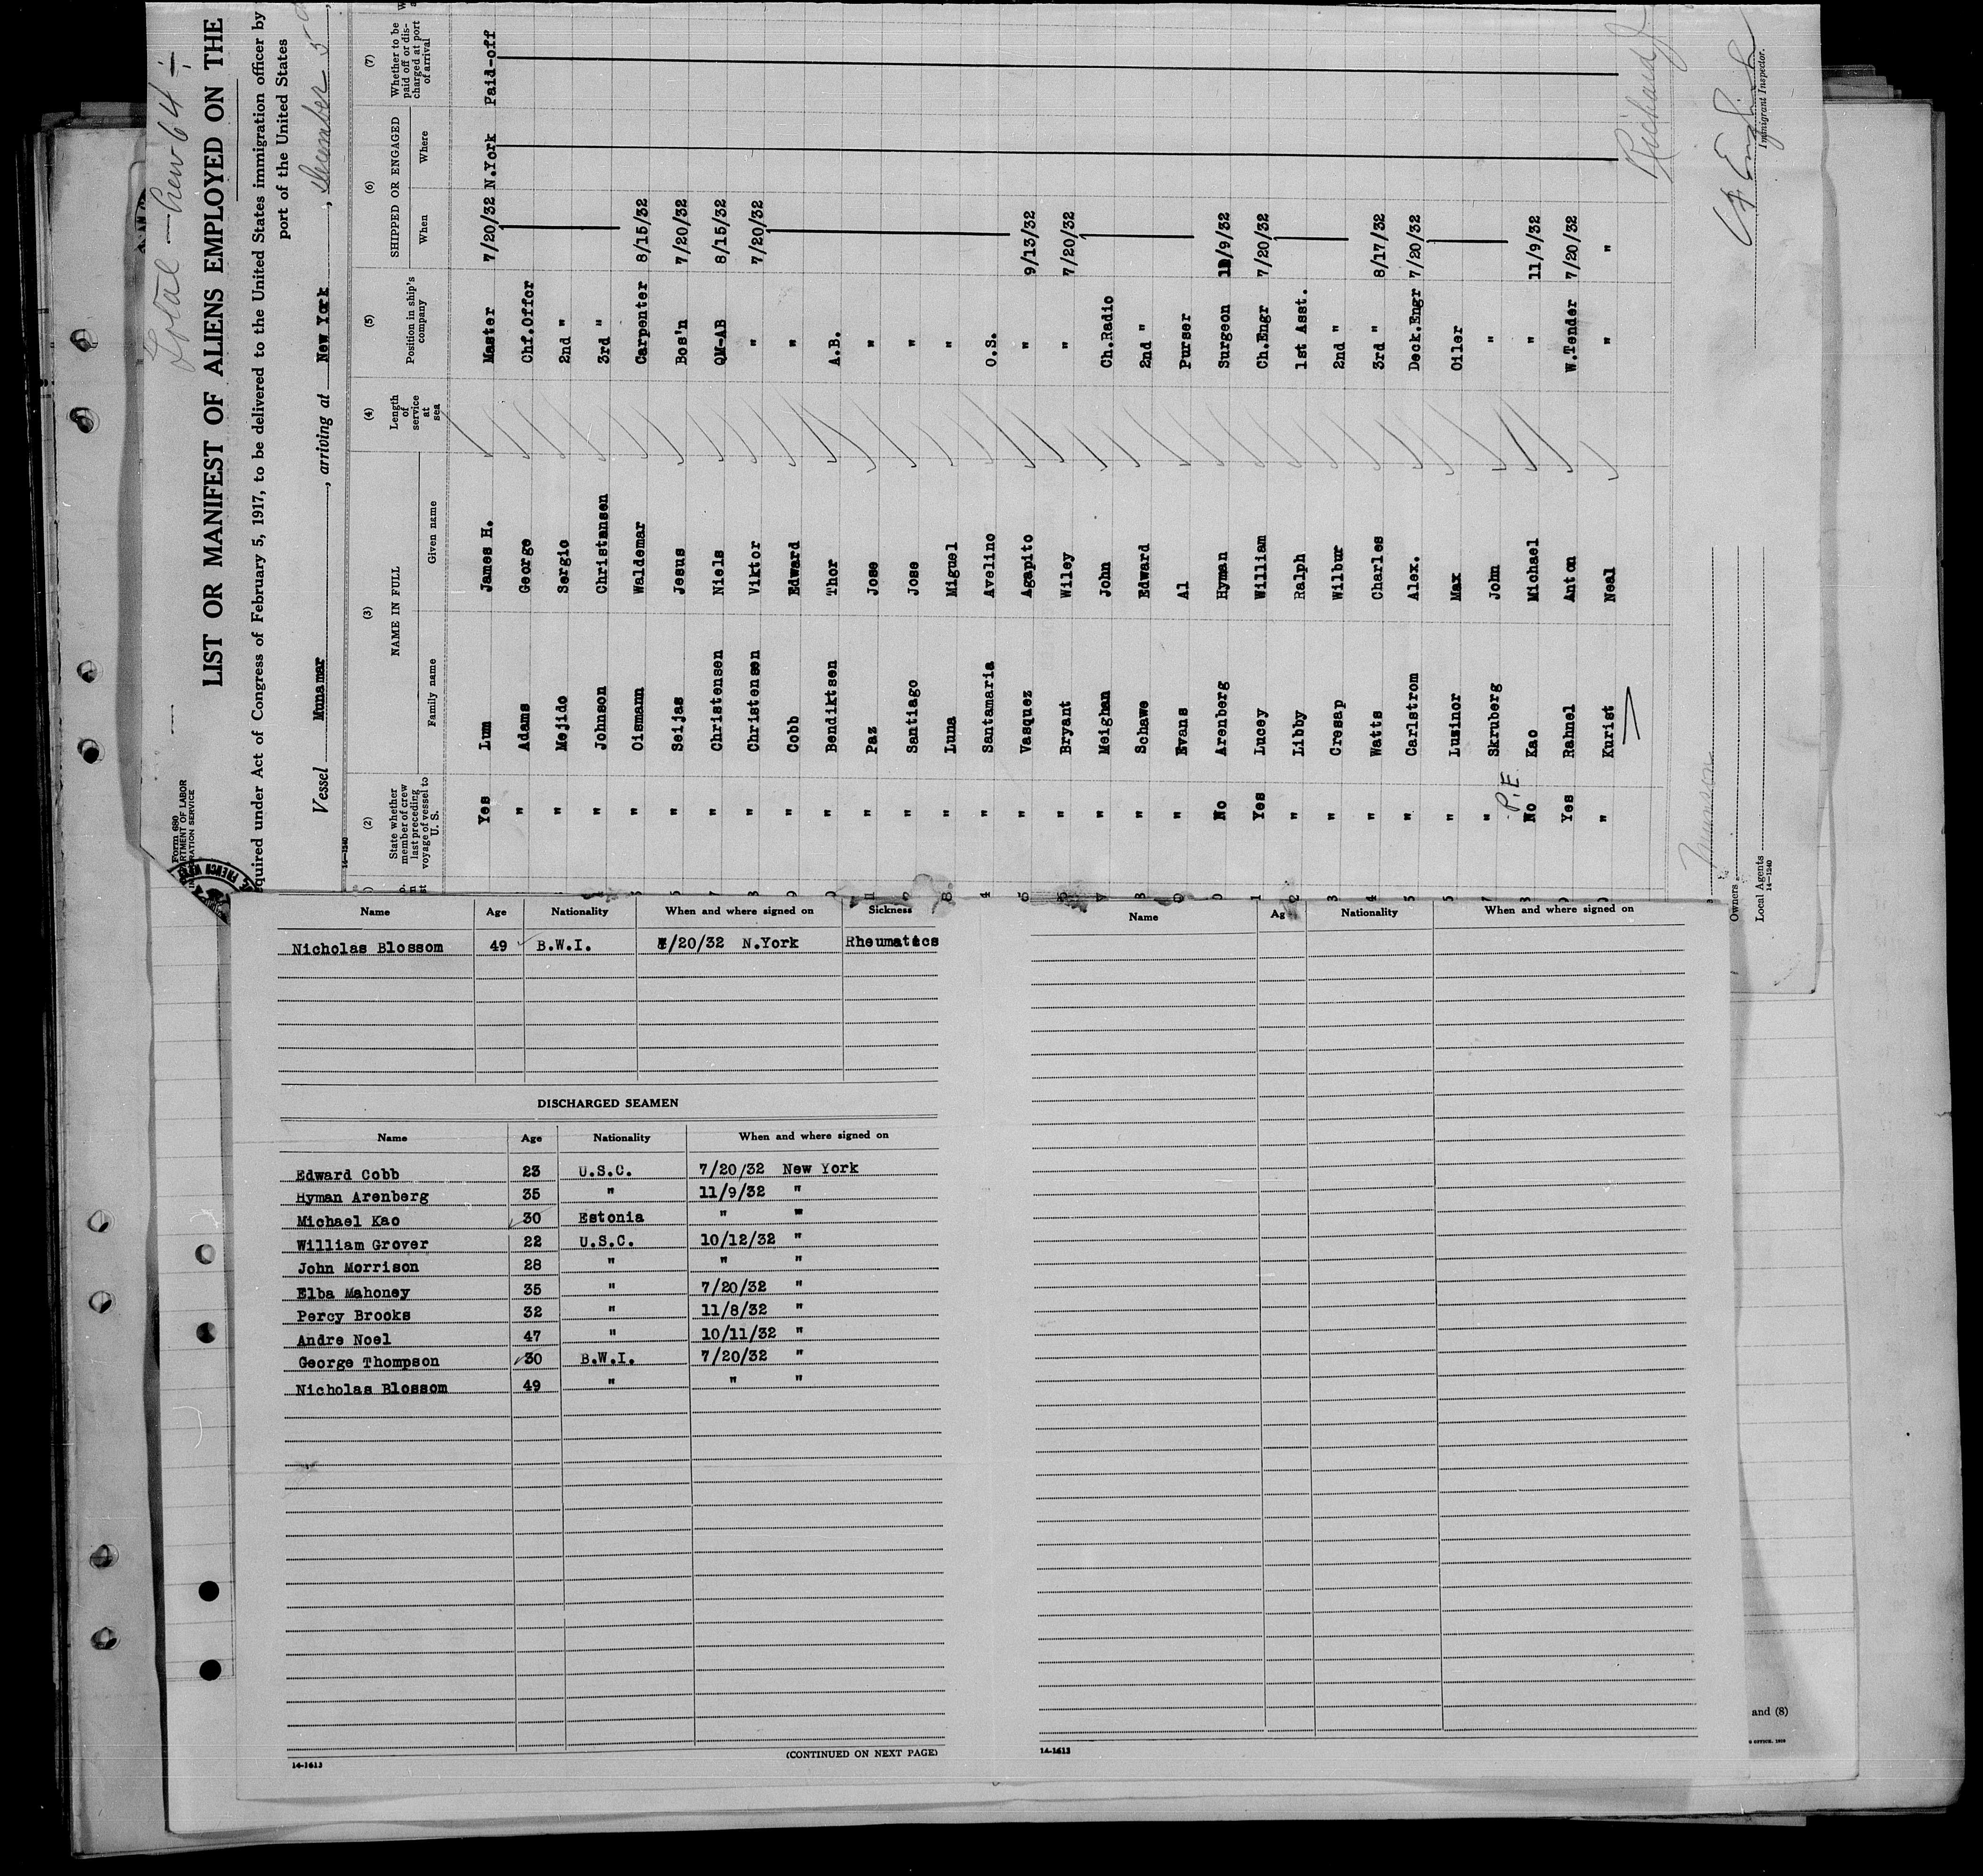 Total — Crew 64
LIST OR MANIFEST OF ALIENS EMPLOYED ON THE
Form 680
DEPARTMENT OF LABOR
IMMIGRATION SERVICE
quired under Act of Congress of February 5, 1917, to be delivered to the United States immigration officer by
port of the United States
Vessel Munamar, arriving at New York, December 5
14—1240
(2) (3) (4) (5) (6) (7)
State whether member of crew last preceding voyage of vessel to U. S. NAME IN FULL Length of service at sea Position in ship's company SHIPPED OR ENGAGED Whether to be paid off or discharged at port of arrival
Family name Given name When Where
Yes Lum James H. Master 7/20/32 N.York Paid-off
" Adams George Chf.Offcr
" Mejido Sergio 2nd "
" Johnson Christansen 3rd "
" Oismann Waldemar Carpenter 8/15/32
" Seijas Jesus Bos'n 7/20/32
" Christensen Niels QM-AB 8/15/32
" Christensen Viktor " 7/20/32
" Cobb Edward "
" Bendiktsen Thor A.B.
" Paz Jose "
" Santiago Jose "
" Luna Miguel "
" Santamaria Avelino O.S.
" Vasquez Agapito " 9/13/32
" Bryant Wiley " 7/20/32
" Meighan John Ch.Radio
" Schawe Edward 2nd "
" Evans Al Purser
No Arenberg Hyman Surgeon 11/9/32
Yes Lucey William Ch.Engr 7/20/32
" Libby Ralph 1st Asst.
" Cresap Wilbur 2nd "
" Watts Charles 3rd " 8/17/32
" Carlstrom Alex. Deck.Engr 7/20/32
" Lusinor Max Oiler
" Skruberg John "
P.E.
No Kao Michael " 11/9/32
Yes Rahnel Anton W.Tender 7/20/32
" Kurist Neal " "
Richard J.
Munson
Owners
Local Agents
14—1240
Immigrant Inspector.
Name Age Nationality When and where signed on Sickness
Nicholas Blossom 49 B.W.I. 7/20/32 N.York Rheumatics
DISCHARGED SEAMEN
Name Age Nationality When and where signed on
Edward Cobb 23 U.S.C. 7/20/32 New York
Hyman Arenberg 35 " 11/9/32 "
Michael Kao 30 Estonia " "
William Grover 22 U.S.C. 10/12/32 "
John Morrison 28 " " "
Elba Mahoney 35 " 7/20/32 "
Percy Brooks 32 " 11/8/32 "
Andre Noel 47 " 10/11/32 "
George Thompson 30 B.W.I. 7/20/32 "
Nicholas Blossom 49 " " "
14-1613
(CONTINUED ON NEXT PAGE)
Name Ag Nationality When and where signed on
14-1613
and (8)